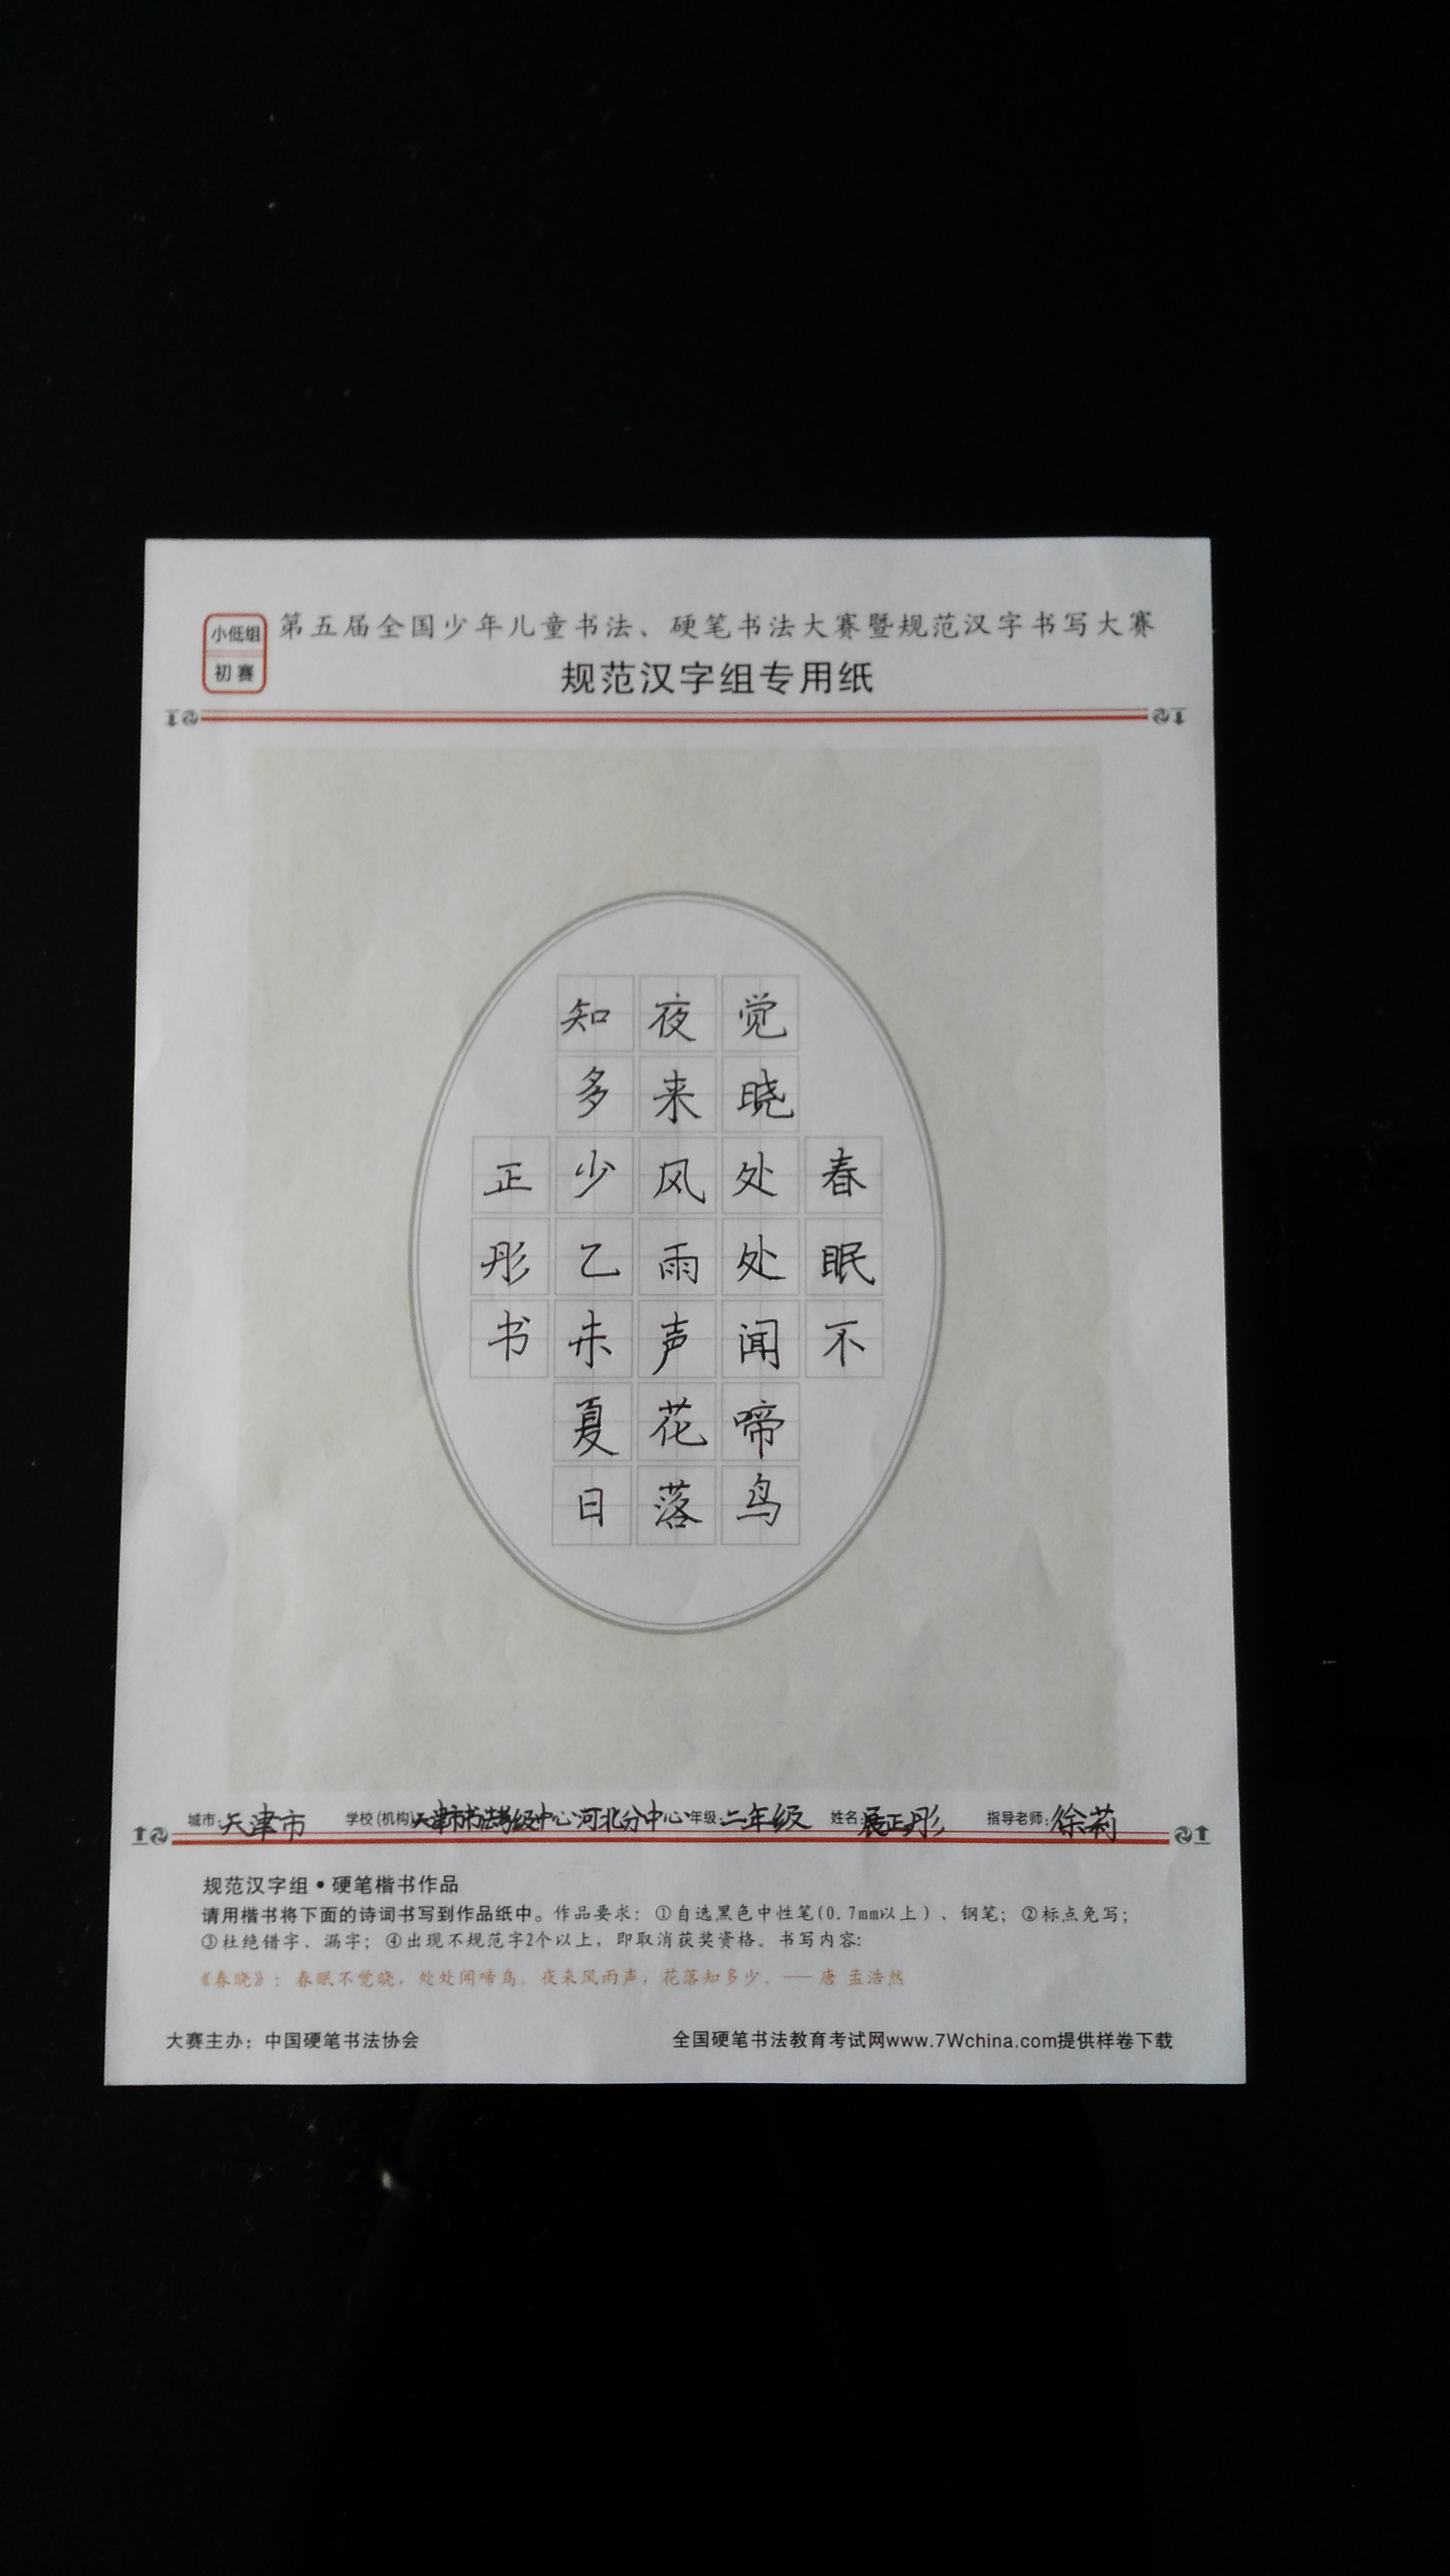 小低组
初赛
第五届全国少年儿童书法、硬笔书法大赛暨规范汉字书写大赛
规范汉字组专用纸
春眠不
觉晓处处闻啼鸟
夜来风雨声花落
知多少乙未夏日
正彤书
城市:天津市 学校(机构)天津市书法考级中心河北分中心 年级:二年级 姓名:展正彤 指导老师:徐莉
规范汉字组•硬笔楷书作品
请用楷书将下面的诗词书写到作品纸中。作品要求：①自选黑色中性笔(0.7mm以上)、钢笔；②标点免写；
③杜绝错字、漏字；④出现不规范字2个以上，即取消获奖资格。书写内容:
《春晓》：春眠不觉晓，处处闻啼鸟。夜来风雨声，花落知多少。——唐 孟浩然
大赛主办：中国硬笔书法协会 全国硬笔书法教育考试网www.7Wchina.com提供样卷下载